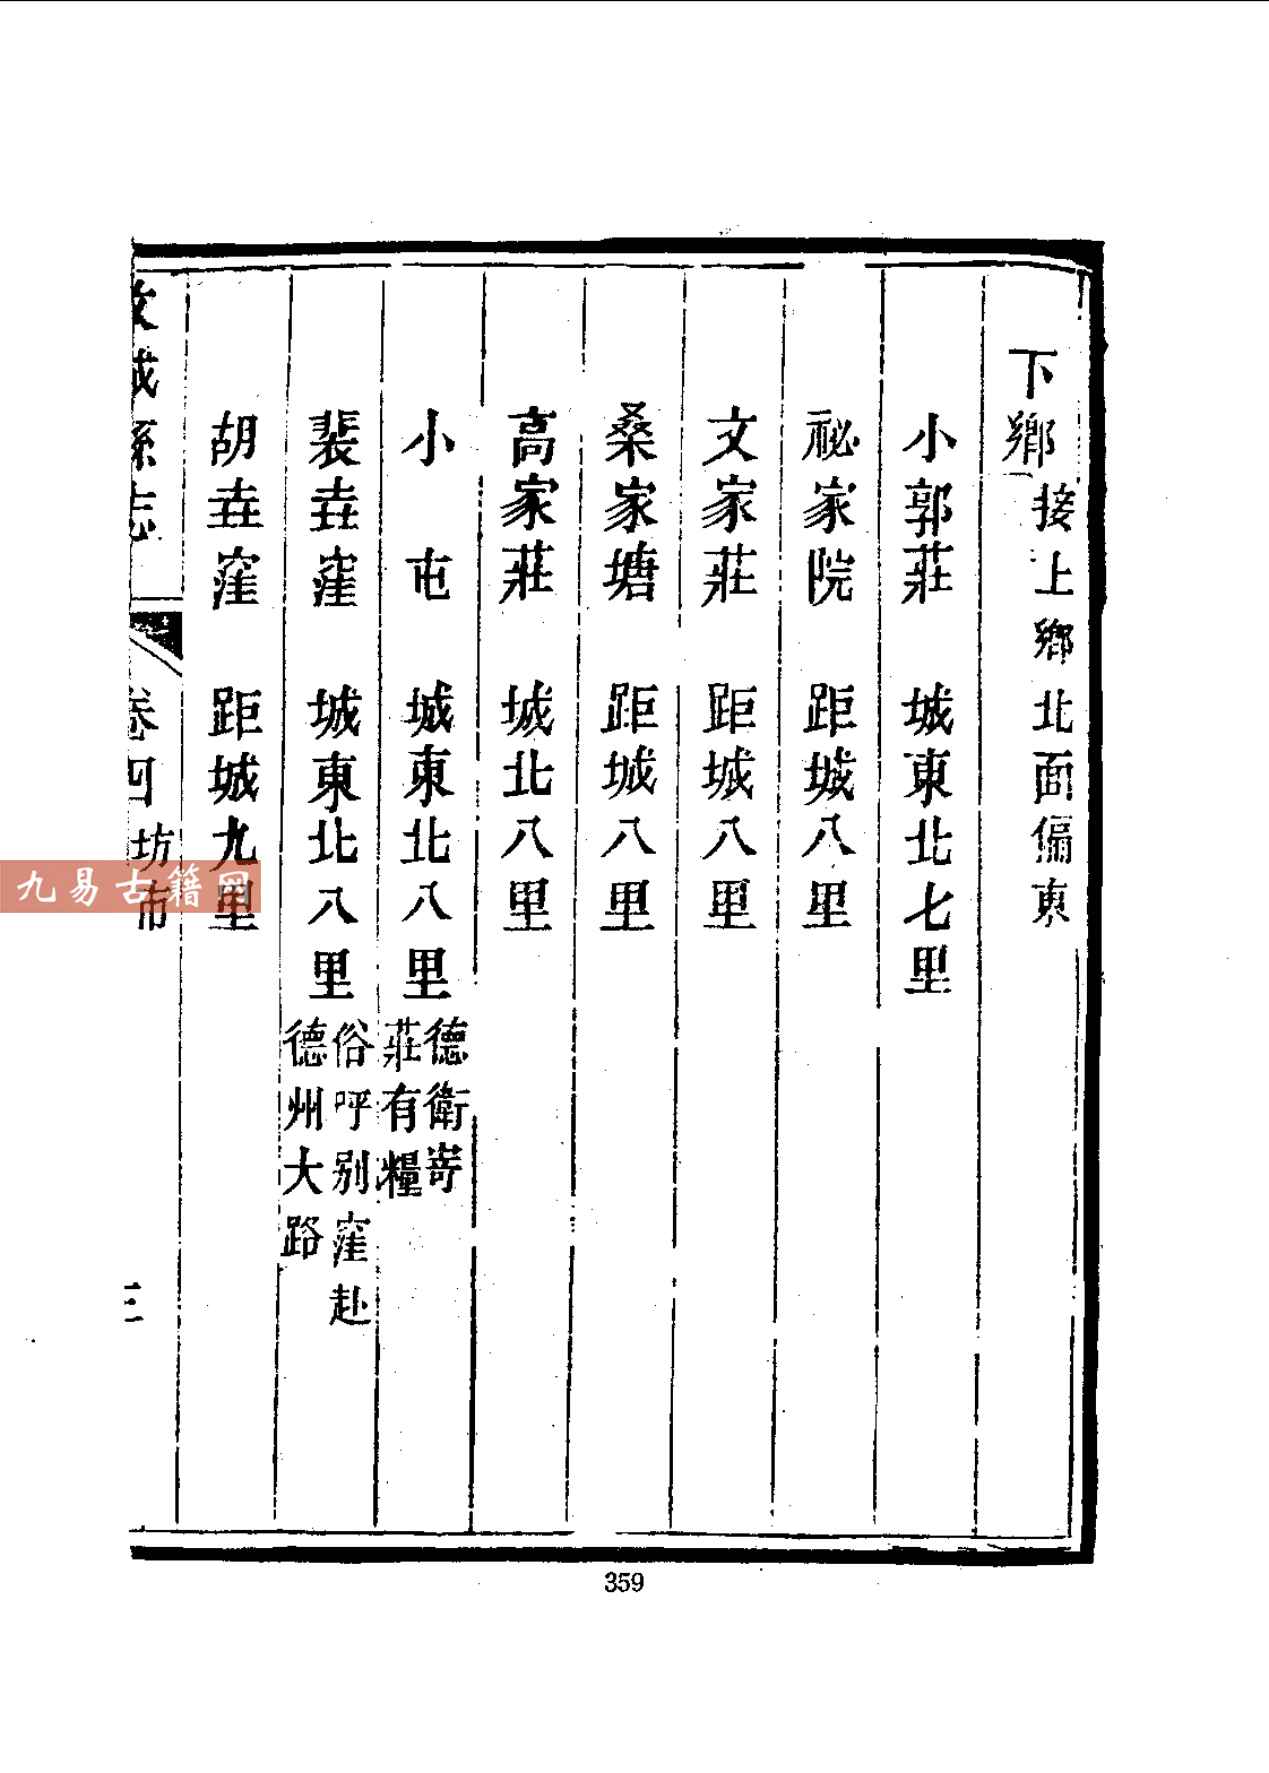 下鄉接上鄉北面偏東
小郭莊　城東北七里
祕家院　距城八里
文家莊　距城八里
桑家塘　距城八里
高家莊　城北八里
小　屯　城東北八里德衛寄莊有糧
裴壵窪　城東北八里俗呼别窪赴德州大路
胡壵窪　距城九里
故城縣志　卷四坊市　三
九易古籍网
359